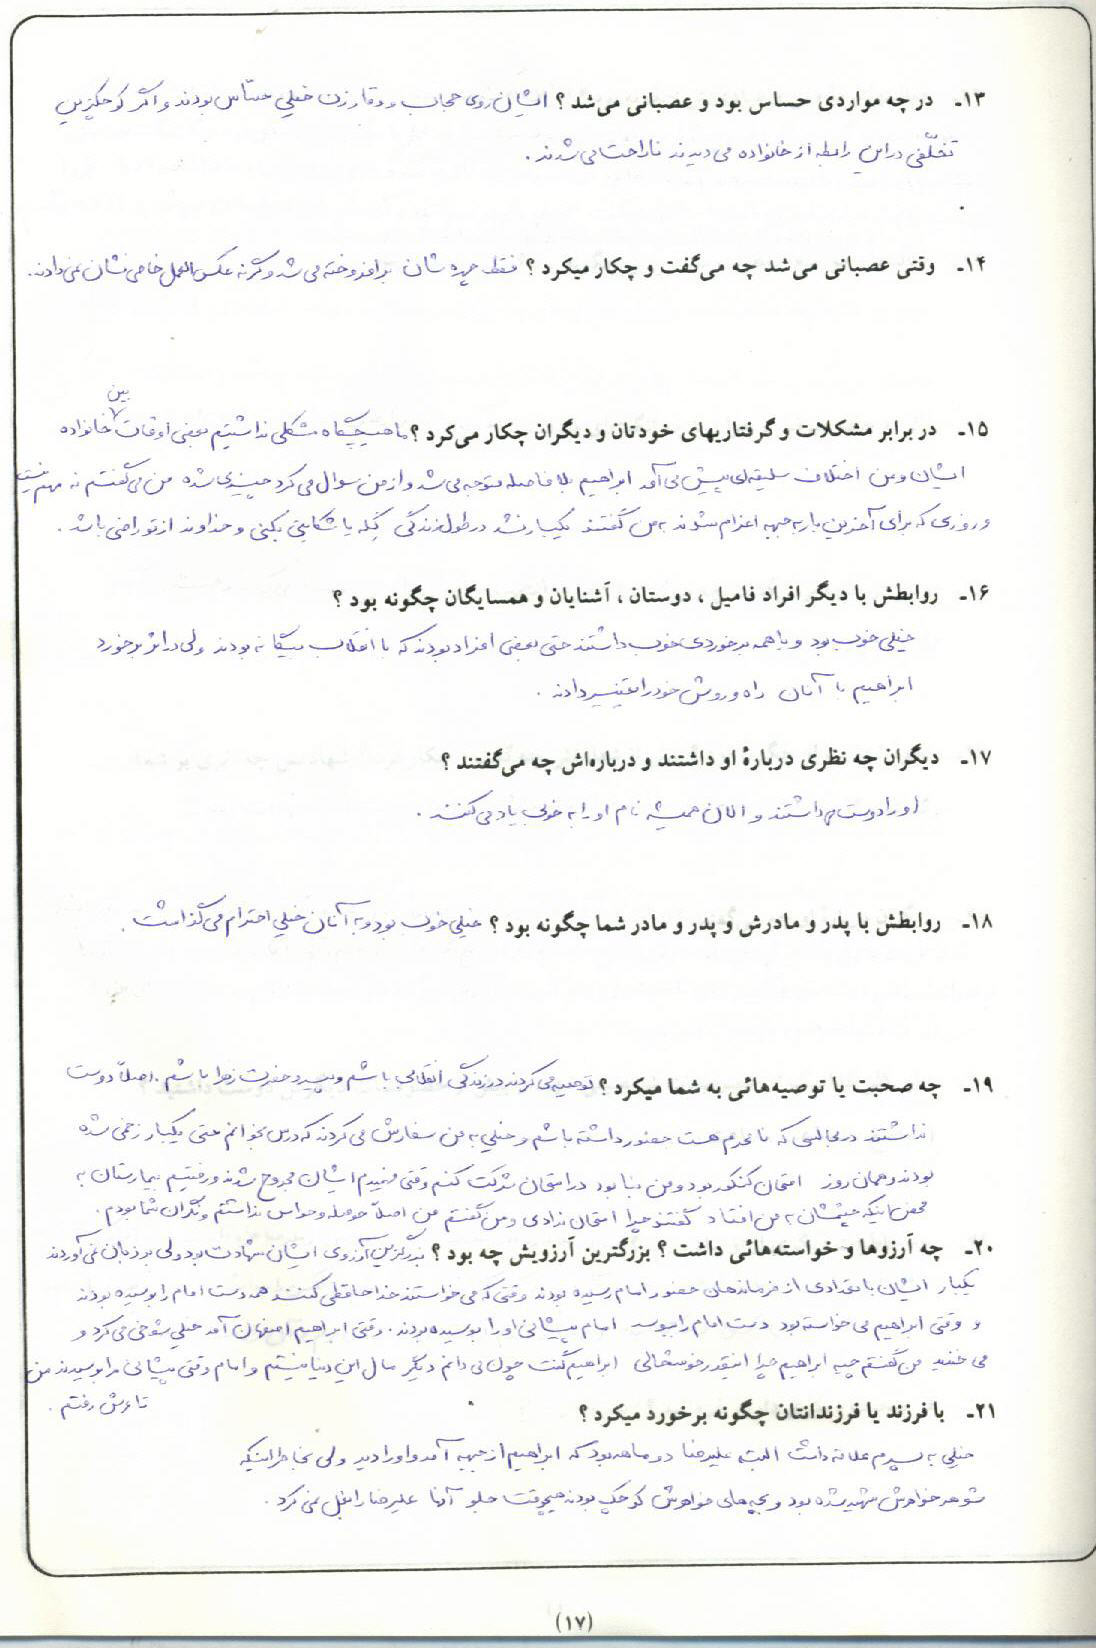 ۱۳ـ در چه مواردی حساس بود و عصبانی می‌شد؟ ایشان روی حجاب و وقار زن خیلی حساس بودند و اگر کوچکترین
تخلّفی در این رابطه از خانواده می دیدند ناراحت می شدند.
۱۴ـ وقتی عصبانی می‌شد چه می‌گفت و چکار میکرد؟ فقط چهره شان برافروخته می شد وگرنه عکس العمل خاصی نشان نمی دادند.
بین
۱۵ـ در برابر مشکلات و گرفتاریهای خودتان و دیگران چکار می‌کرد؟ ما هیچگاه مشکلی نداشتیم بعضی اوقات خانواده
ایشان و من اختلاف سلیقه‌ای پیش می آمد ابراهیم بلافاصله متوجه می شد و از من سوال می کرد چیزی شده من می گفتم نه مهم نیست
و روزی که برای آخرین بار به جبهه اعزام شوند به من گفتند یکبار نشد در طول زندگی گِله یا شکایتی بکنی و خداوند از تو راضی باشد.
۱۶ـ روابطش با دیگر افراد فامیل، دوستان، آشنایان و همسایگان چگونه بود؟
خیلی خوب بود و با همه برخوردی خوب داشتند حتی بعضی افراد بودند که با انقلاب بیگانه بودند ولی در اثر برخورد
ابراهیم با آنان راه و روش خود را تغییر دادند.
۱۷ـ دیگران چه نظری دربارهٔ او داشتند و درباره‌اش چه می‌گفتند؟
او را دوست داشتند و الان همیشه نام او را به خوبی یاد می کنند.
۱۸ـ روابطش با پدر و مادرش و پدر و مادر شما چگونه بود؟ خیلی خوب بود و به آنان خیلی احترام می گذاشت.
۱۹ـ چه صحبت یا توصیه‌هائی به شما میکرد؟ توصیه می کردند در زندگی انقلابی باشم و پیرو حضرت زهرا باشم. اصلاً دوست
نداشتند در مجالسی که نامحرم هست حضور داشته باشم و خیلی به من سفارش می کردند که درس بخوانم حتی یکبار زخمی شده
بودند و همان روز امتحان کنکور بود و من بنا بود در امتحان شرکت کنم وقتی فهمیدم ایشان مجروح شدند و رفتیم بیمارستان به
محض اینکه چشمشان به من افتاد گفتند چرا امتحان ندادی و من گفتم من اصلاً حوصله و حواس نداشتم و نگران شما بودم.
۲۰ـ چه آرزوها و خواسته‌هائی داشت؟ بزرگترین آرزویش چه بود؟ بزرگترین آرزوی ایشان شهادت بود ولی بر زبان نمی آوردند
یکبار ایشان با تعدادی از فرماندهان حضور امام رسیده بودند وقتی که می خواستند خداحافظی کنند همه دست امام را بوسیده بودند
و وقتی ابراهیم می خواسته بود دست امام را ببوسد امام پیشانی او را بوسیده بودند. وقتی ابراهیم اصفهان آمد خیلی شوخی می کرد و
می خندید من گفتم چیه ابراهیم چرا اینقدر خوشحالی ابراهیم گفت چون می دانم دیگر مال این دنیا نیستم و امام وقتی پیشانی مرا بوسیدند من
تا عرش رفتم.
۲۱ـ با فرزند یا فرزندانتان چگونه برخورد میکرد؟
خیلی به پسرم علاقه داشت البته علیرضا دو ماهه بود که ابراهیم از جبهه آمد و او را دید ولی بخاطر اینکه
شوهر خواهرش شهید شده بود و بچه های خواهرش کوچک بودند هیچوقت جلو آنها علیرضا را بغل نمی کرد.
(۱۷)